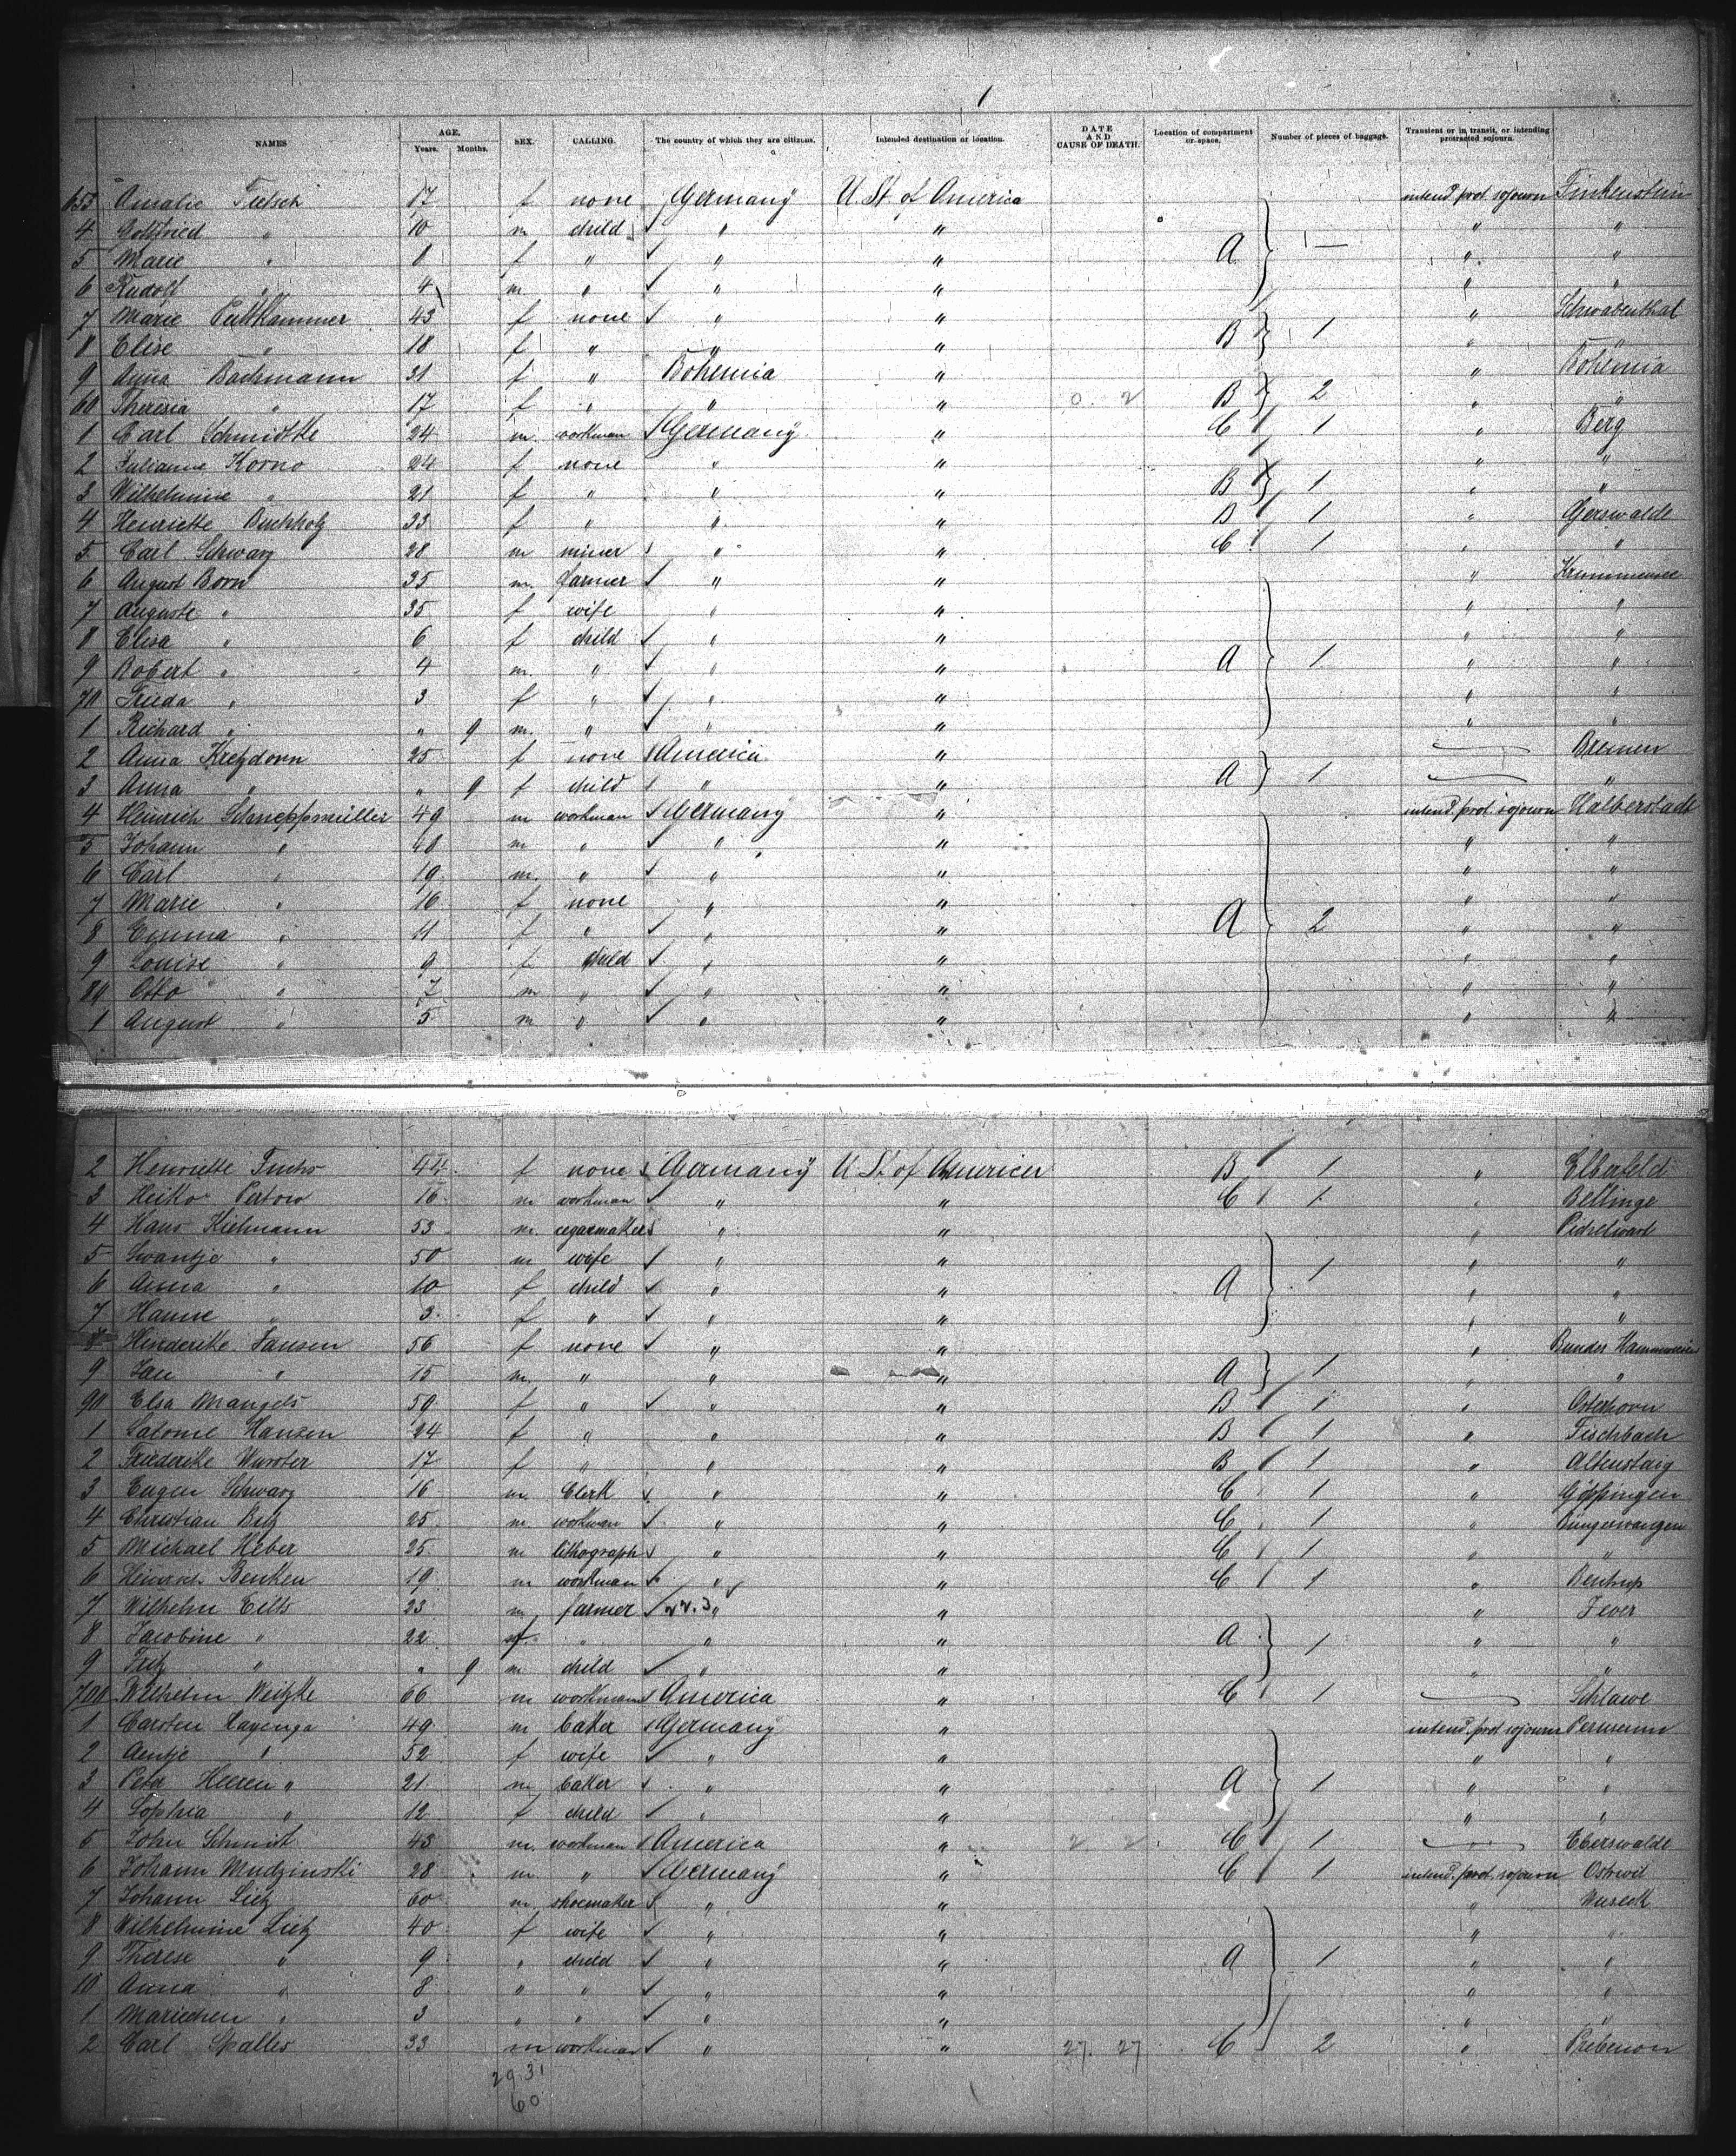 1
NAMES AGE. Years. Months. SEX. CALLING. The country of which they are citizens. Intended destination or location. DATE AND CAUSE OF DEATH. Location of compartment or space. Number of pieces of baggage. Transient or in transit, or intending protracted sojourn.
653 Amalie Tietsch 17 f none Germany U. St. of America intend. prot. sojourn Finkenstein
4 Gottfried " 10 m child " " " "
5 Marie " 8 f " " " A 1 " "
6 Rudolf " 4 m " " " " "
7 Marie Puttkammer 43 f none " " " Schwabenthal
8 Elise " 18 f " " " B 1 " "
9 Anna Bachmann 31 f " Bohemia " " Bohemia
60 Theresia " 17 f " " " 0. 2 B 2 " "
1 Carl Schmidtke 24 m. workman Germany " C 1 " Berg
2 Julianne Korno 24 f none " " " "
3 Wilhelmine " 21 f " " " B 1 " "
4 Henriette Buchholz 33 f " " " B 1 " Gerswalde
5 Carl Schwarz 28 m miner " " C 1 " "
6 August Born 35 m. farmer " " "
7 Auguste " 35 f wife " " " "
8 Elisa " 6 f child " " " "
9 Robert " 4 m. " " " A 1 " "
70 Frieda " 3 f " " " " "
1 Richard " " 9 m. " " " " "
2 Anna Kretzdorn 25 f none America " Bremen
3 Anna " " 9 f child " " A 1 "
4 Heinrich Schneppmüller 49 m workman Germany " intend. prot. sojourn Halberstadt
5 Johann " 40 m " " " " "
6 Carl " 19 m. " " " " "
7 Marie " 16 f none " " " "
8 Emma " 11 f " " " A 2 " "
9 Louise " 9 f child " " " "
80 Otto " 7 m " " " " "
1 August " 5 m " " " " "
2 Henriette Fuchs 44 f none Germany U. St. of America B 1 " Elberfeld
3 Heiko Pertow 16 m workman " " C 1 " Bellinge
4 Hans Kielmann 53 m. cegarmaker " " "
5 Swantje " 50 m wife " " 1 " "
6 Anna " 10 f child " " A " "
7 Hanne " 3 f " " " " "
8 Hinderike Jansen 56 f none " " "
9 Jan " 15 m. " " " A 1 " "
90 Elsa Mangels 59 f " " " B 1 " Osterhorn
1 Salome Hansen 24 f " " " B 1 " Fischbach
2 Friederike Wurster 17 f " " " B 1 " Altenstaig
3 Eugen Schwarz 16 m. Clerk " " C 1 " Göppingen
4 Christian Betz 25 m. workman " " C 1 "
5 Michael Heber 25 m lithograph " " C 1 " "
6 Benken 19 m workman " " C 1 " Bentrup
7 Wilhelm Eilts 23 m farmer 22.3 " " " Jever
8 Jacobine " 22 f " " " A 1 " "
9 Fritz " " 9 m child " " " "
700 Wilhelm Weitzke 66 m workman America " C 1 Schlawe
1 Carsten Hayenga 49 m baker Germany " intend. prot. sojourn
2 Aentje " 52 f wife " " " "
3 Peter Heeren " 21 m baker " " A 1 " "
4 Sophia " 12 f child " " " "
5 John Schmidt 43 m. workman America " 2 2 C 1 Eberswalde
6 Johann Mudzinski 28 m " Germany " C 1 intend. prot. sojourn
7 Johann Lietz 60 m. shoemaker " " "
8 Wilhelmine Lietz 40 f wife " " " "
9 Therese " 9 " child " " A 1 " "
10 Anna " 8 " " " " " "
1 Mariechen " 3 " " " " " "
2 Carl 33 m workman " " 27. 27 C 2 "
29.31
60